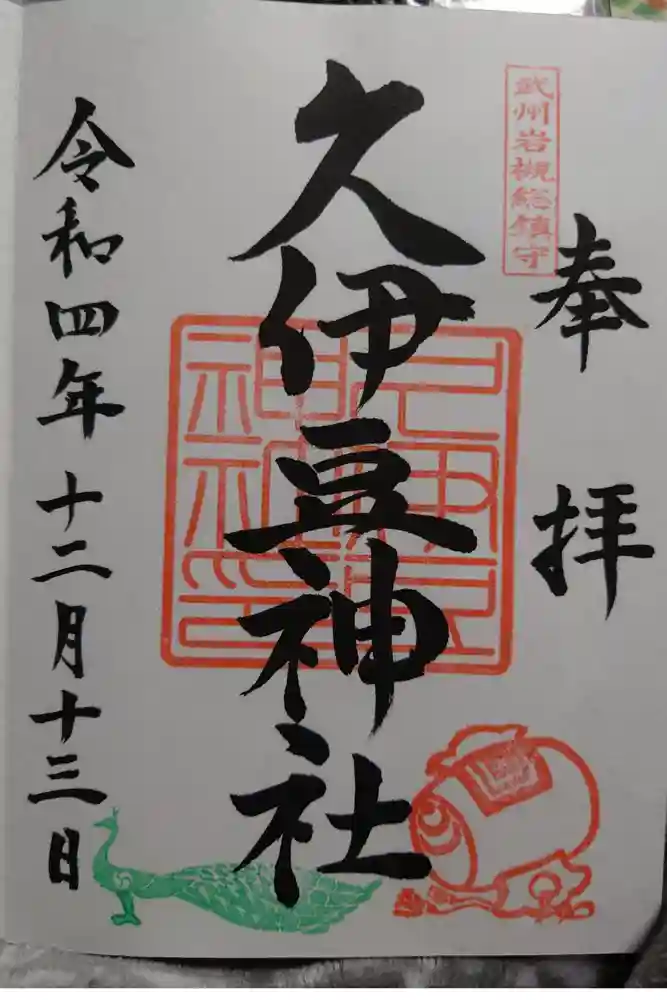 武州岩槻総鎮守
奉拝
久伊豆神社
久伊豆神社印
令和四年十二月十三日